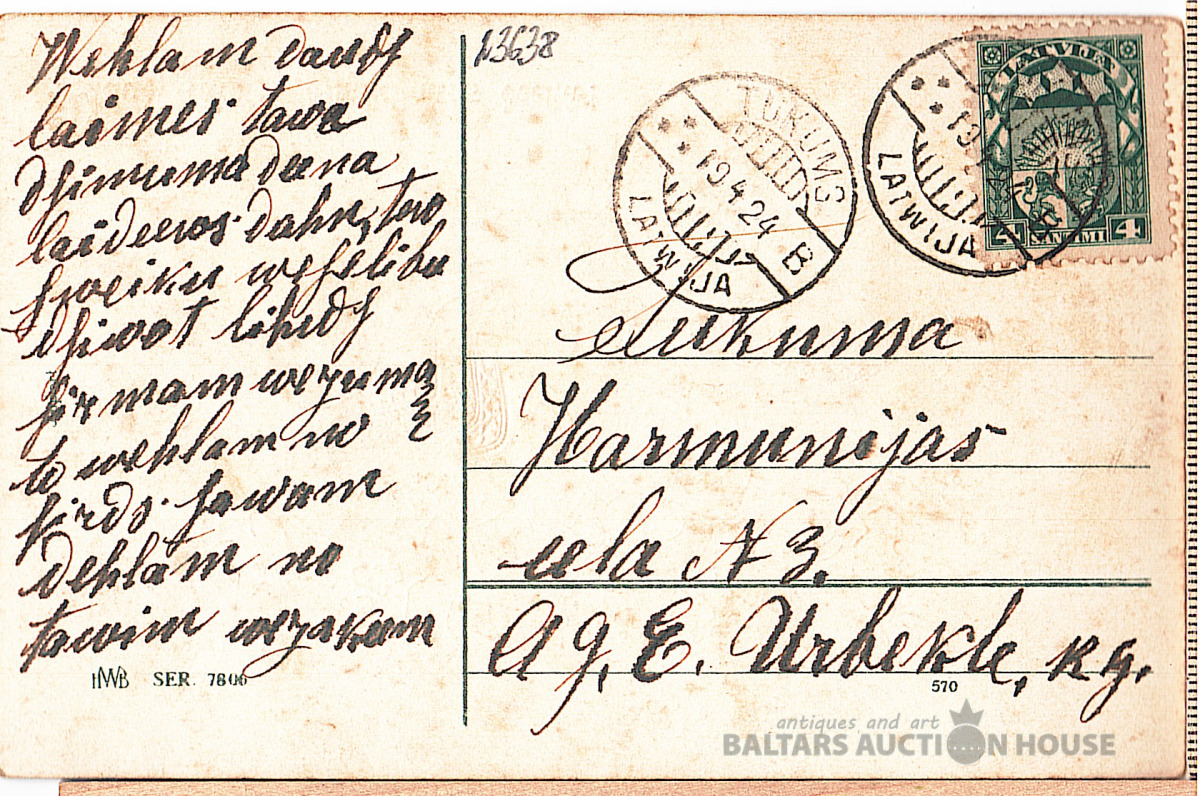 Wehlam daudf
laimes tawa
dfimuma deena
laideews dahu, tew
sweiku weselibu
dfiwot lihdf
sir mam wezuma
to wehlam no
sirds sawam
dehlam no
tawim wezakam
HWB SER. 7806
13638
TUKUMS
19.4.24
LATWIJA B
LATVIJA
19
LATWIJA
4 SANTIMI 4
Tukuma
Harmunijas
eela N 3.
Ag, E. Urbekle, kg.
570
antiques and art
BALTARS AUCTION HOUSE